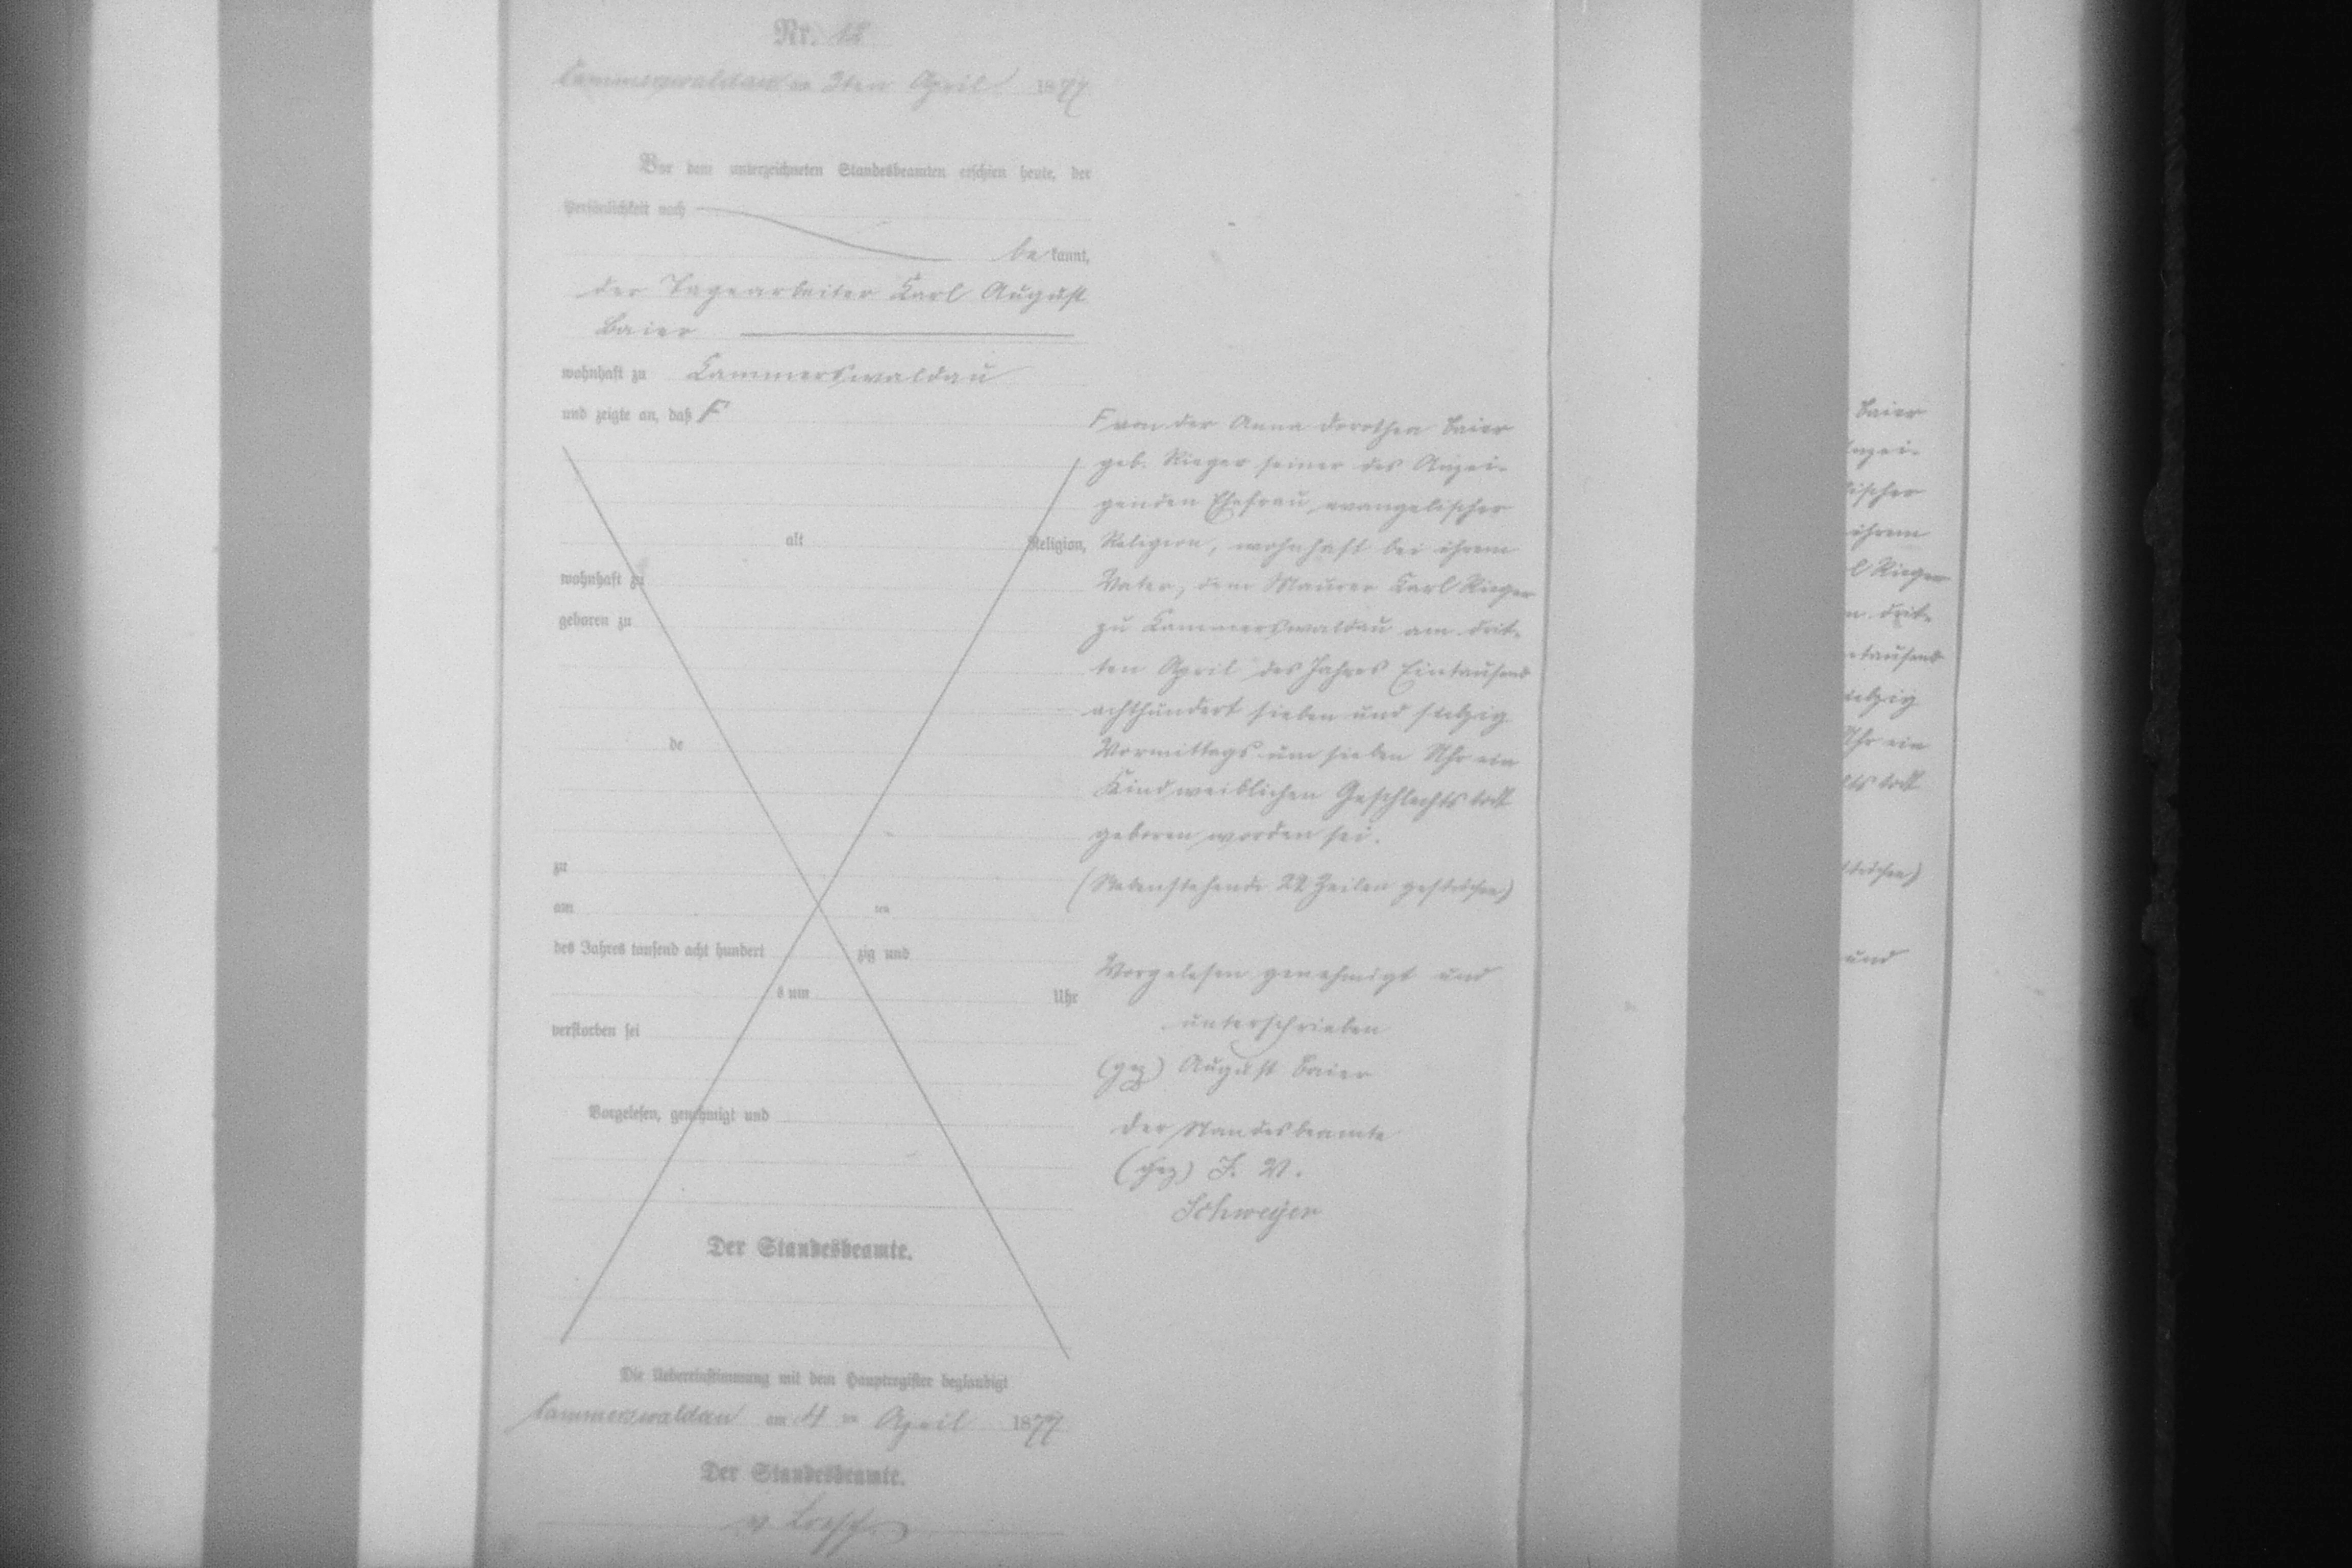 Nr. 18
Cammerswaldau am 3ten April 1877
Vor dem unterzeichneten Standesbeamten erschien heute, der
Persönlichkeit nach
bekannt,
der Tagearbeiter Karl August
Baier
wohnhaft zu Cammerswaldau
und zeigte an, daß F
alt Religion,
wohnhaft zu
geboren zu
de
zu
am ten
des Jahres tausend acht hundert zig und
s um Uhr
verstorben sei
Vorgelesen, genehmigt und
Der Standesbeamte.
F von der Anna Dorothea Baier
geb. Rieger seiner des Anzei-
genden Ehefrau, evangelischer
Religion, wohnhaft bei ihrem
Vater, dem Maurer Karl Rieger
zu Kammerswaldau am drit-
ten April des Jahres Eintausend
achthundert sieben und siebzig
Vormittags um sieben Uhr ein
Kind weiblichen Geschlechts todt
geboren worden sei.
(Nebenstehende 22 Zeilen gestrichen)
Vorgelesen genehmigt und
unterschrieben
(gez) August Baier
Der Standesbeamte
(gez) I. V.
Schweyer
Die Uebereinstimmung mit dem Hauptregister beglaubigt
Cammerswaldau am 4 ten April 1877
Der Standesbeamte.
v. Loesch
Baier
nzei-
ischer
ihrem
l Rieger
n drit-
ntausend
iebzig
Uhr ein
hts todt
trichen)
und